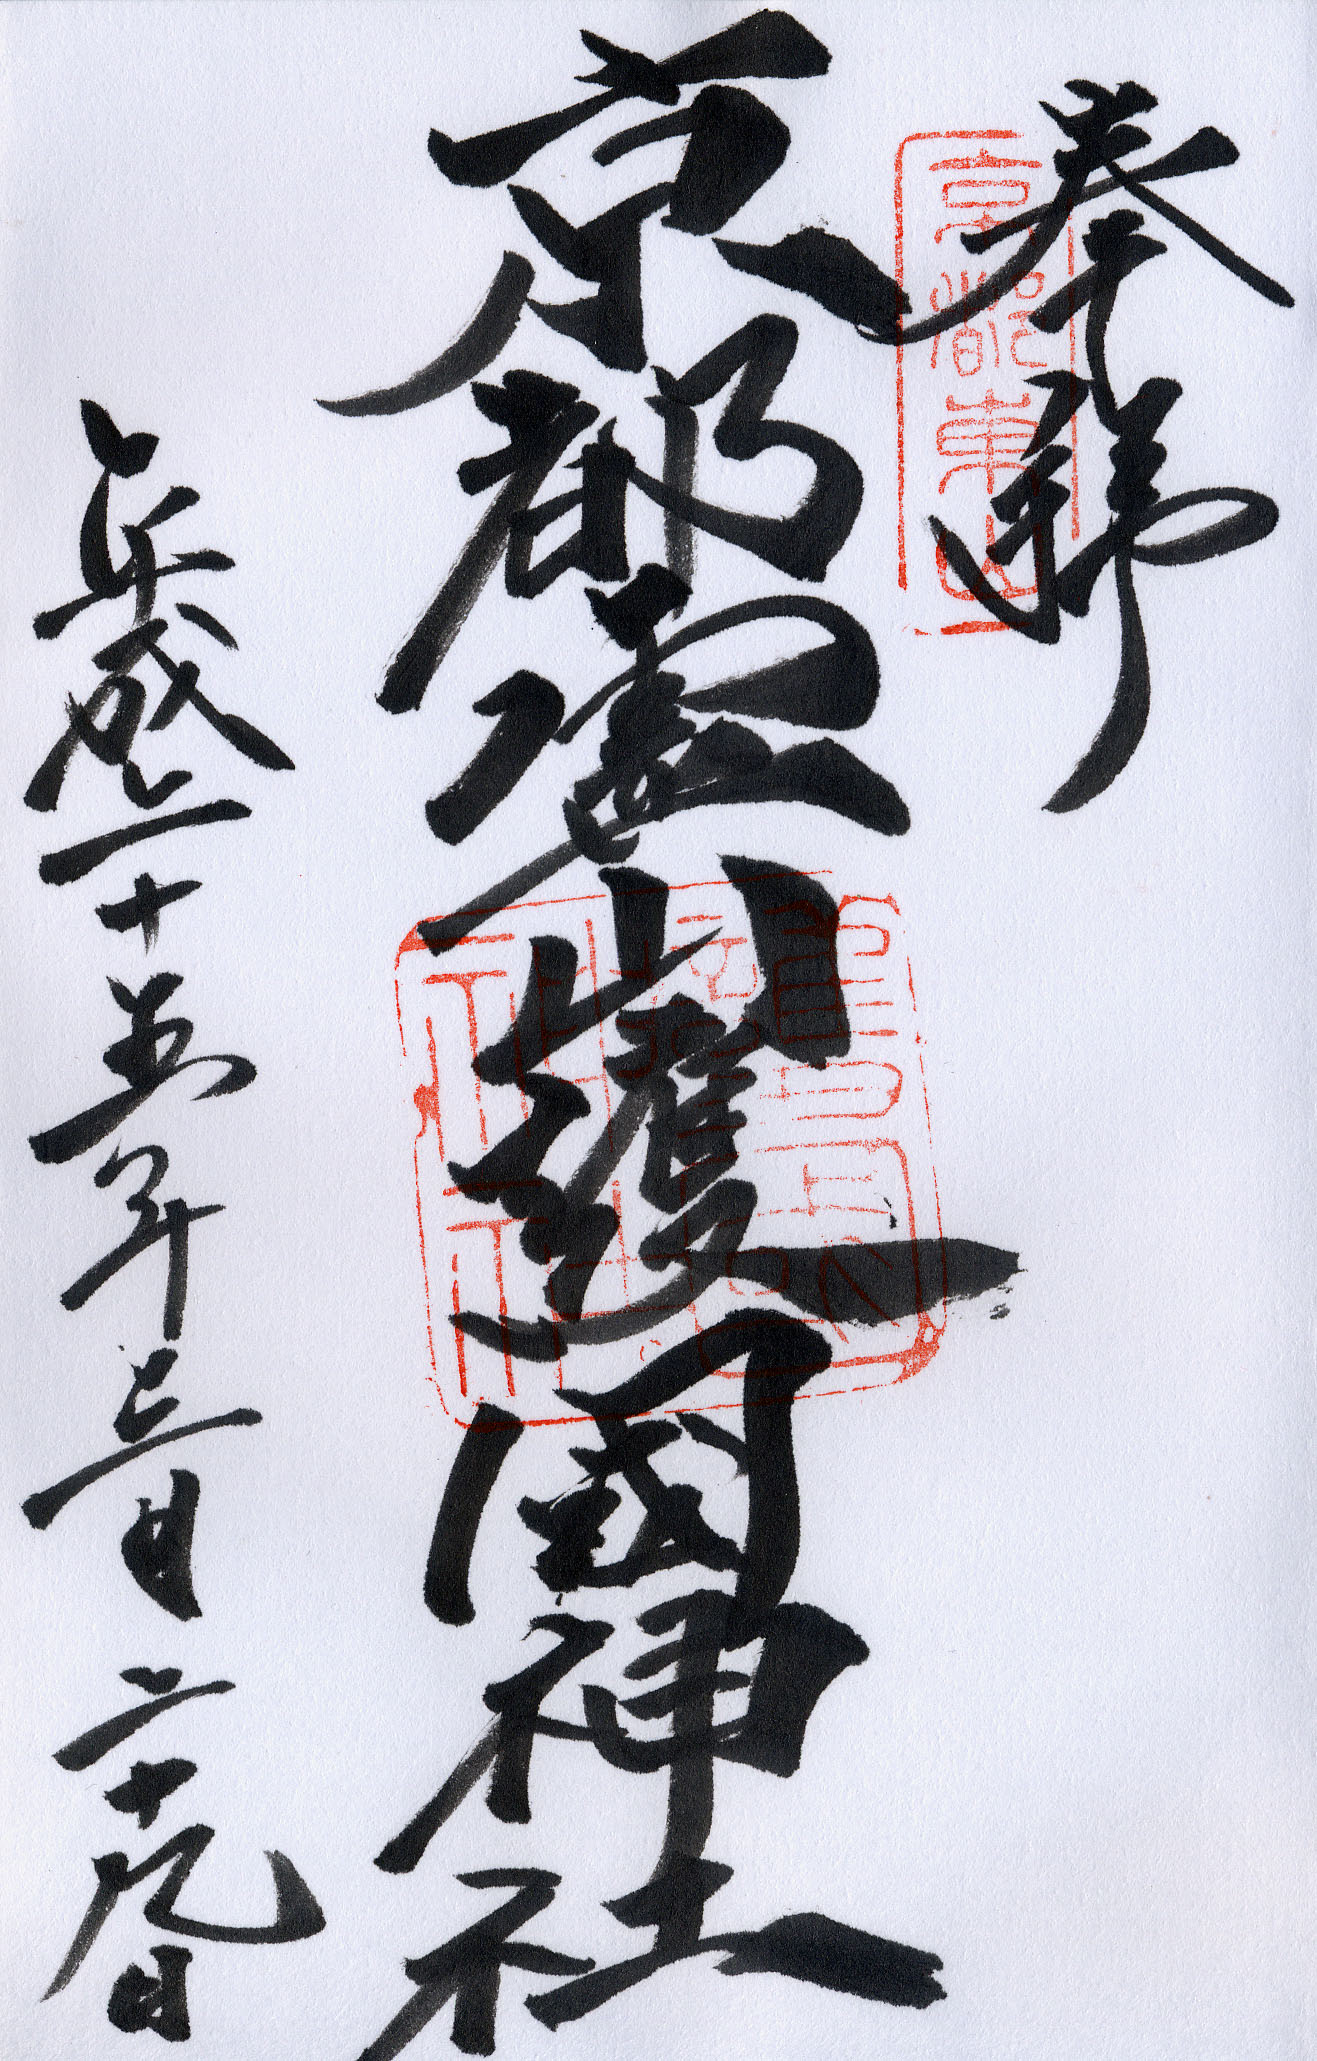 奉拝
京都東山
京都霊山護國神社
平成二十五年三月二十九日